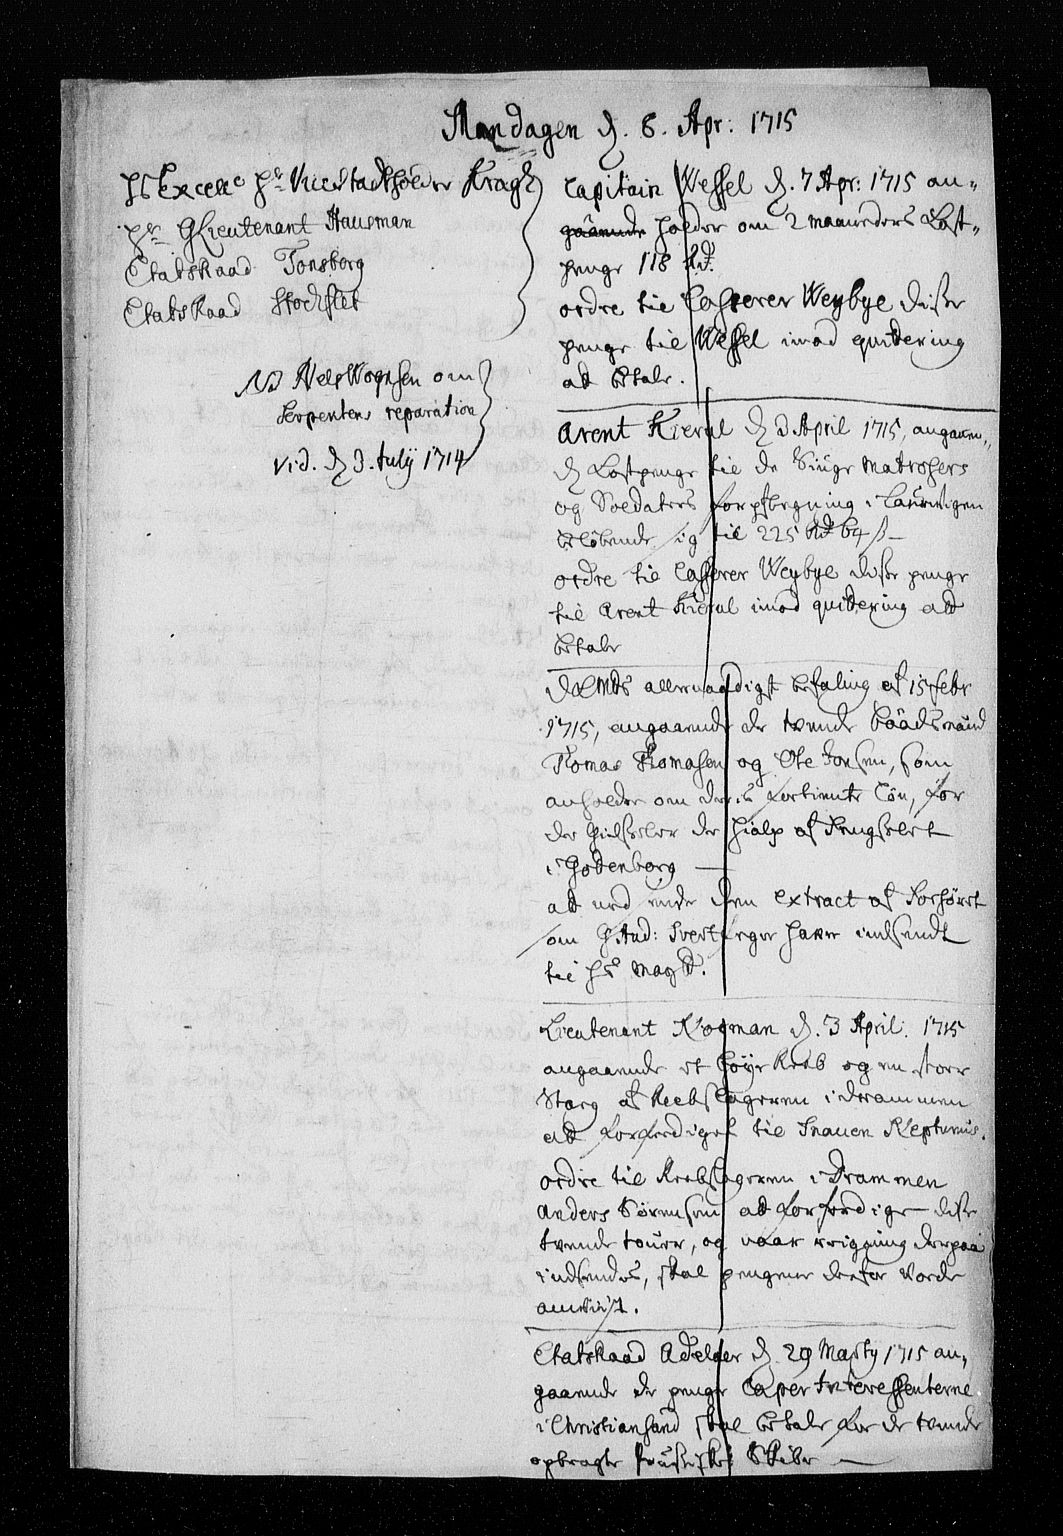 Mandagen d. 8. Apr: 1715
Hs Excell: Hr Vice Stadtholder Kragh
Hr GLieutenant Hausman
Etatsraad Tonsberg
Etatsraad Stochflet
NB Nels Wognsen om
Serpentens reparation
vid. d. 3. Julij 1714
Capitain Wessel d. 7 Apr: 1715 an-
gaaende holder om 2 maaneders Kost-
penge 118 Rd.
ordre til Casserer Weybye disse
penge til Wessel imod qvitering
at betale.
Arent Kierul d. 3 April 1715, angaaen-
de Kostpenge til de Siuge Matrosers
og Soldaters forpflegning i Laurvigen
beløbende sig til 225 Rd 64 s
ordre til Casserer Weybye disse penge
til Arent Kierul imod qvitering at
betale
D K Mts allernaadigst befaling af 15 Febr
1715, angaaende de tvende Baadsmænd
Tomas Tomasen og Ole Jonsen, som
anholder om deres fortiente Løn, for
der hielp af Fengselet
i Gottenborg
at ned sende den extract af Forhøret
som And: Svertfeger haver indsendt
til Hs Mayst.
Lieutenant Nogman d. 3 April: 1715
angaaende et Tøyr Reeb og en store
Stag af Reebslageren i Drammen
at forferdiget til Snauen Neptunus.
ordre til Reebslageren i Drammen
Anders Sørensen at forferdige disse
tvende touer, og naar reigning derpaa
indsendes, skal pengene derfor vorde
anvist.
Etatsraad Adeler d. 29 Marty 1715 an-
gaaende de penge Caper Interessenterne
i Christiansand skal betale for de tvende
opbragte Skibe